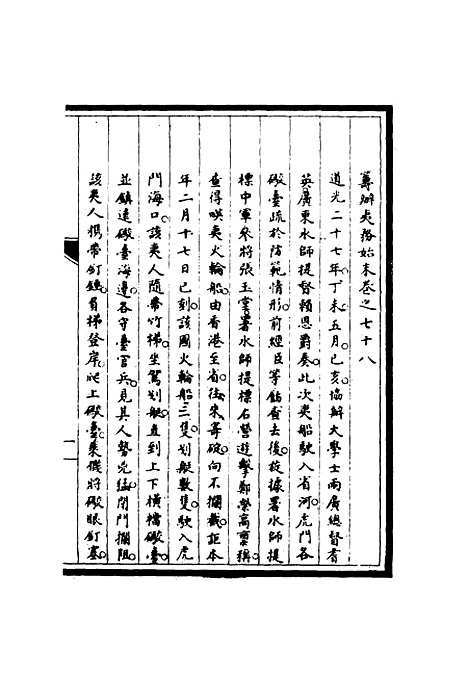 籌辦夷務始末卷之七十八
道光二十七年丁未五月己亥協辦大學士兩廣總督耆
英廣東水師提督賴恩爵奏此次夷船駛入省河虎門各
礮臺疏於防範情形前經臣等飭查去後旋據署水師提
標中軍參將張玉堂署水師提標右營遊擊鄭榮高稟稱
查得㗸夷火輪船由香港至省往來寄碇向不攔截詎本
年二月十七日巳刻該國火輪船三隻划艇數隻駛入虎
門海口該夷人隨帶竹梯坐駕划艇直到上下橫檔礮臺
並鎮遠礮臺海邊各守臺官兵見其人勢兇猛閉門攔阻
該夷人攜帶釘鎚肩梯登岸爬上礮臺乘機將礮眼釘塞
一